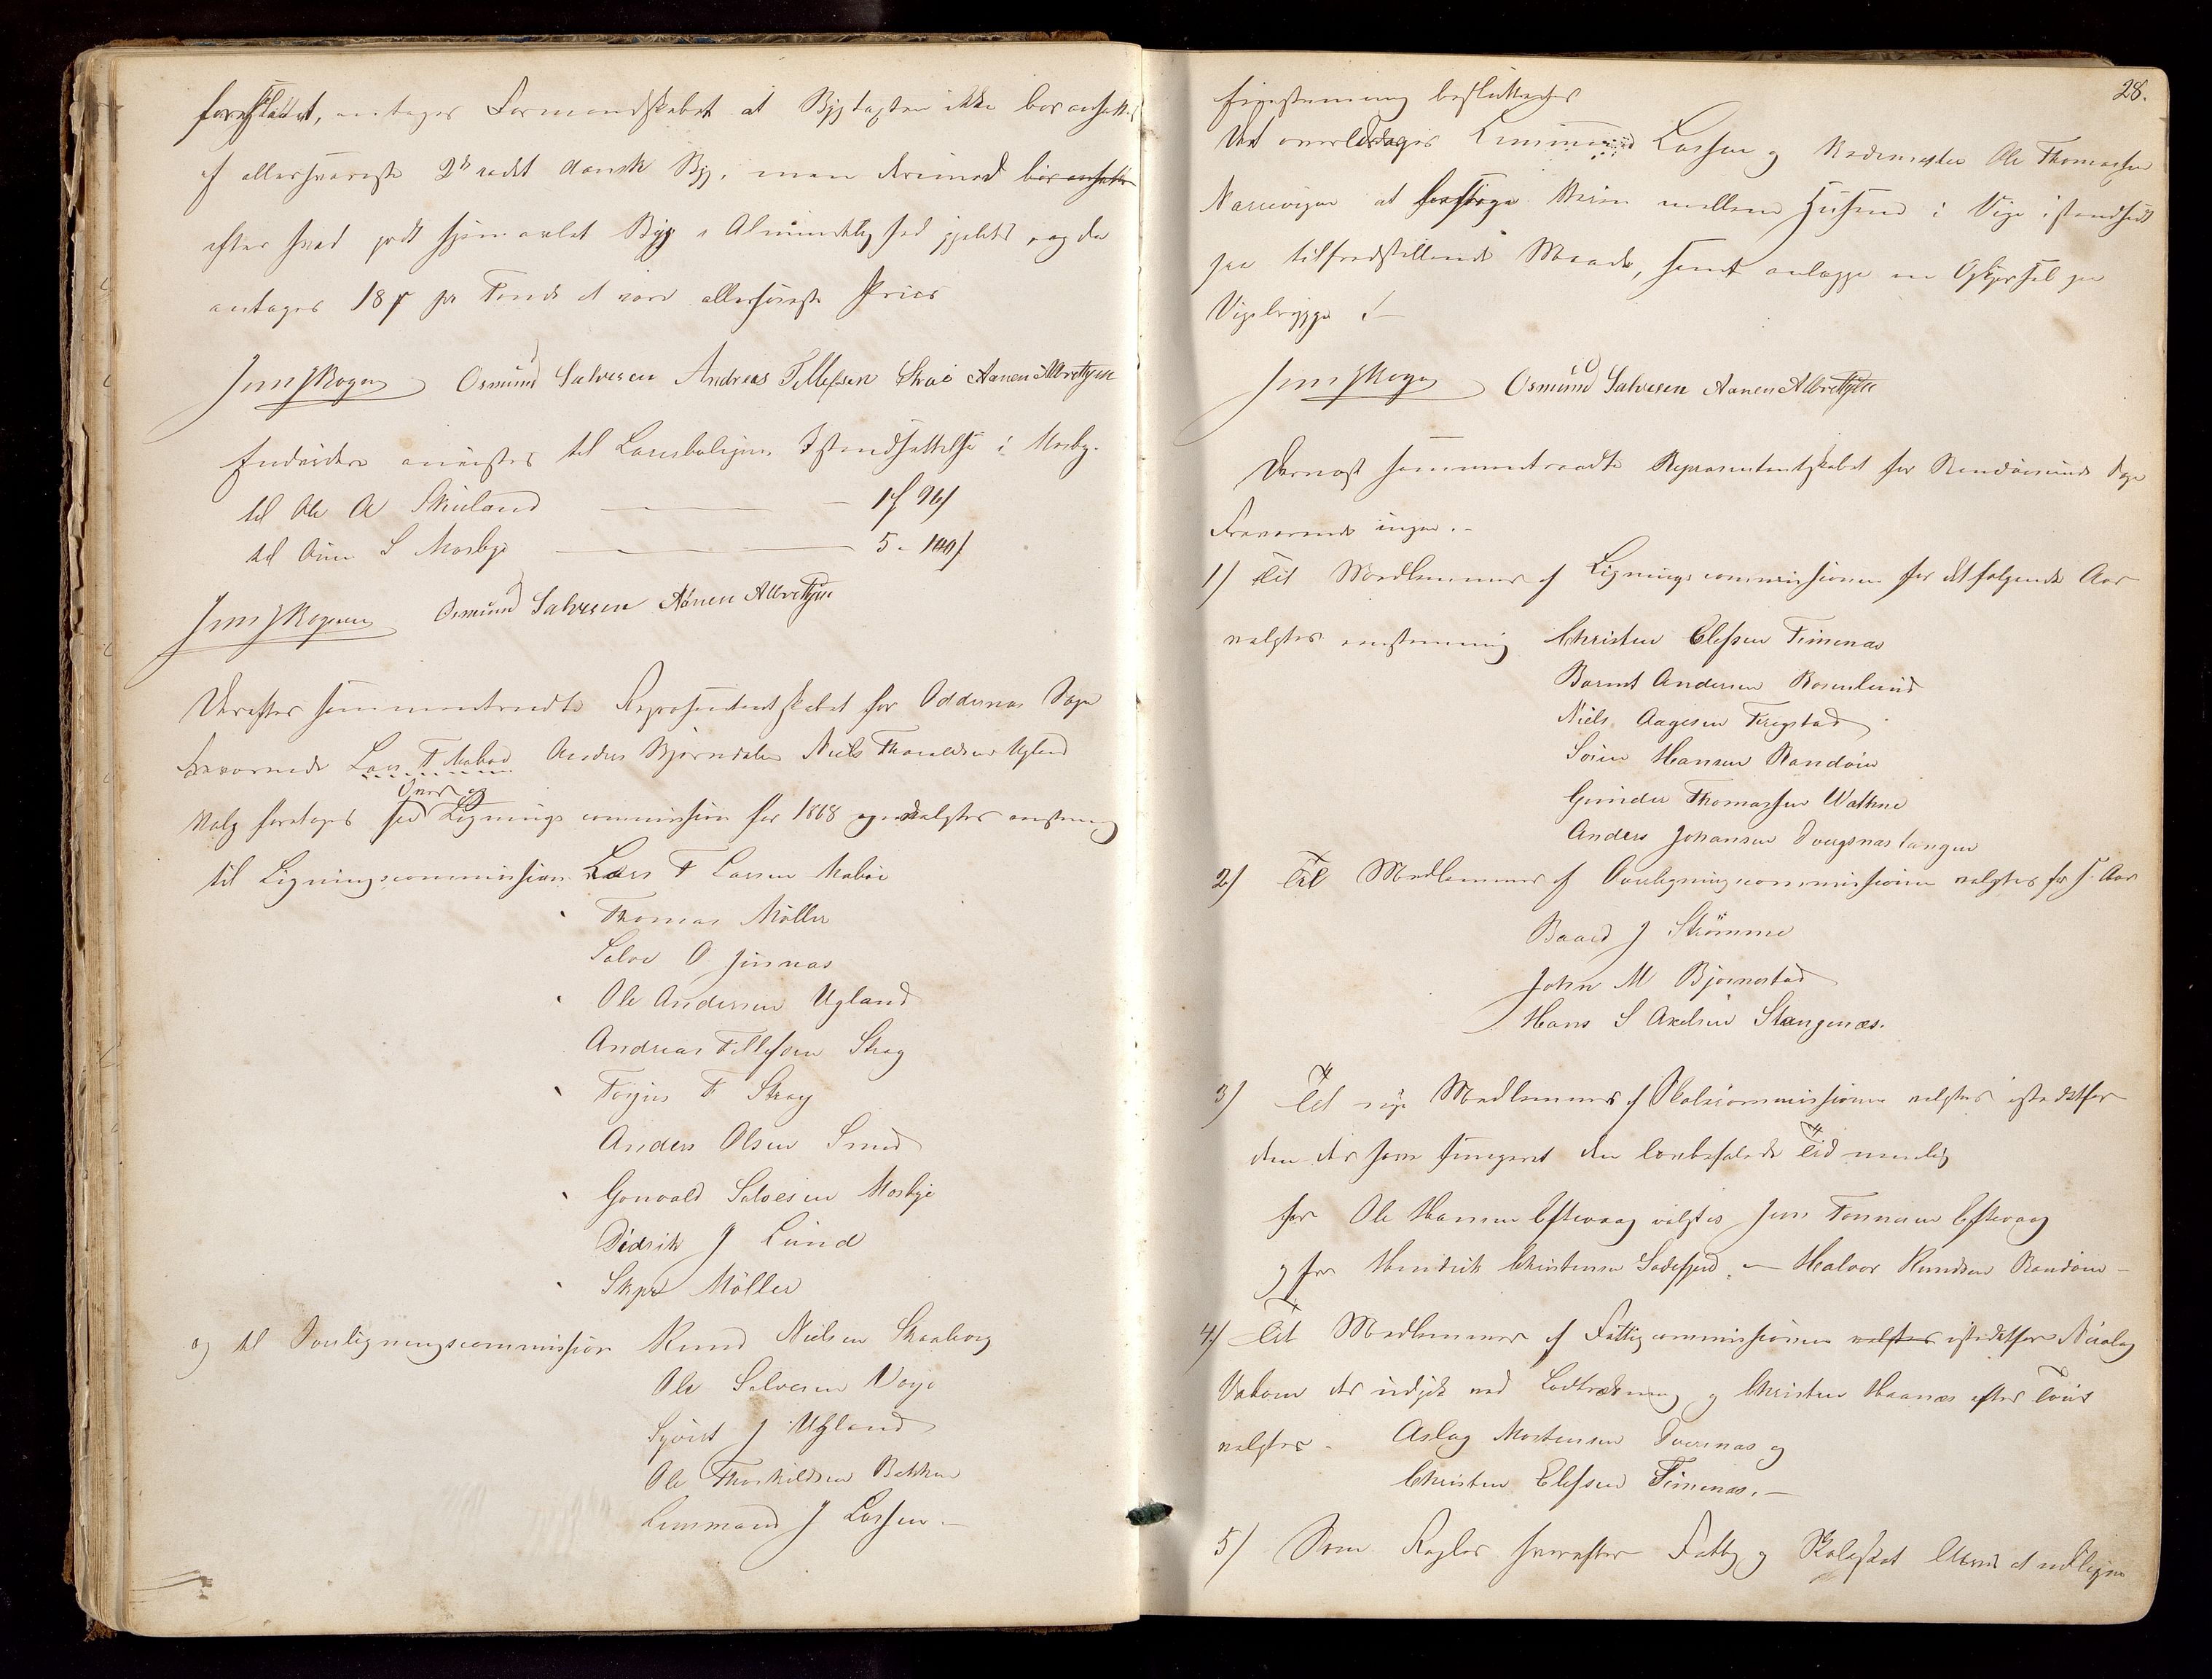 foreslaaet, antages Formandskabet at Bygtagten ikke bør ansættes
af allersværeste 2 radet dansk Byg, men derimod bør ansættes
efter hvad godt hjemavlet Byg i Almindelighed gjelder, og da
antages 18 pr Tønde at være allerhøieste Priis
Osmund Salvesen Andreas Tellefsen Strai Aanen Albretzen
Endvidere anvistes til Lærerboligens Istandsættelse i Mosby.
til Ole A Skuland 1 96
til S Mosby 5
Osmund Salvesen Aanen Albretzen
Derefter sammentraadte Repræsentantskabet for Oddernes Sogn
Fraværende Lars T Mabøe Anders Bjørndalen Niels Thoraldsen Ugland
Over og
Valg foretoges paa Lignings commission for 1868 og valgtes enstemmig
til Ligningscommission Lars T Larsen Mabøe
Thomas Möller
Salve O Jusnæs
Ole Andersen Ugland
Andreas Tellefsen Stray
T Stray
Anders Olsen
Gonvald Salvesen Mosbye
Didrik J Lund
Skpr Möller
og til Overligningscommission Knud Nielsen Skraaborg
Ole Salvesen Voye
Syvert J Ugland
Ole Thorkildsen Bakken
Lensmand J Larsen
28.
Eenstemmig besluttedes
Det overdrages Lensmand Larsen og Rodemester Ole Thomassen
Narrevigen at besørge Veien mellem Husene i Vige istandsat
paa tilfredsstillende Maade, samt anlægge en Opkjørsel paa
Vigebrygge
Osmund Salvesen Aanen Albretzen
Dernæst sammentraadte Repræsentantskabet for Randøsunds Sogn
Fraværende ingen.
1) Til Medlemmer af Ligningscommissionen for det følgende Aar
valgtes enstemmig Christen Elefsen Timenæs
Bernt Andersen Rosenlund
Niels Aagesen Fregstad
Søren Hansen Randøen
Gunder Thomassen Wathne
Anders Johansen Dvergsnæstangen
2) Til Medlemmer af Overligningscommissionen valgtes for f. Aar
Baard J Strömme
John M Bjørnestad
Hans S Axelsen Stangenæs.
3) Til nye Medlemmer af Skolecommissionen valgtes istedetfor
dem der have fungeret den lovbefalede Tid nemlig
for Ole Hansen Eftevaag valgtes Jens Tønnesen Eftevaag
og for Hendrik Christensen Sodefjed — Halvor Knudsen Randøen
4) Til Medlemmer af Fattigcommissionen valgtes istedetfor Nicolay
der udgik ved Lodtrækning og Christen Haanæs efter Tour
valgtes. Aslag Mortensen Dversnæs og
Christen Elefsen Timenæs.
5) Som Regler hvorefter Fattig og Skoleskat bliver at udligne